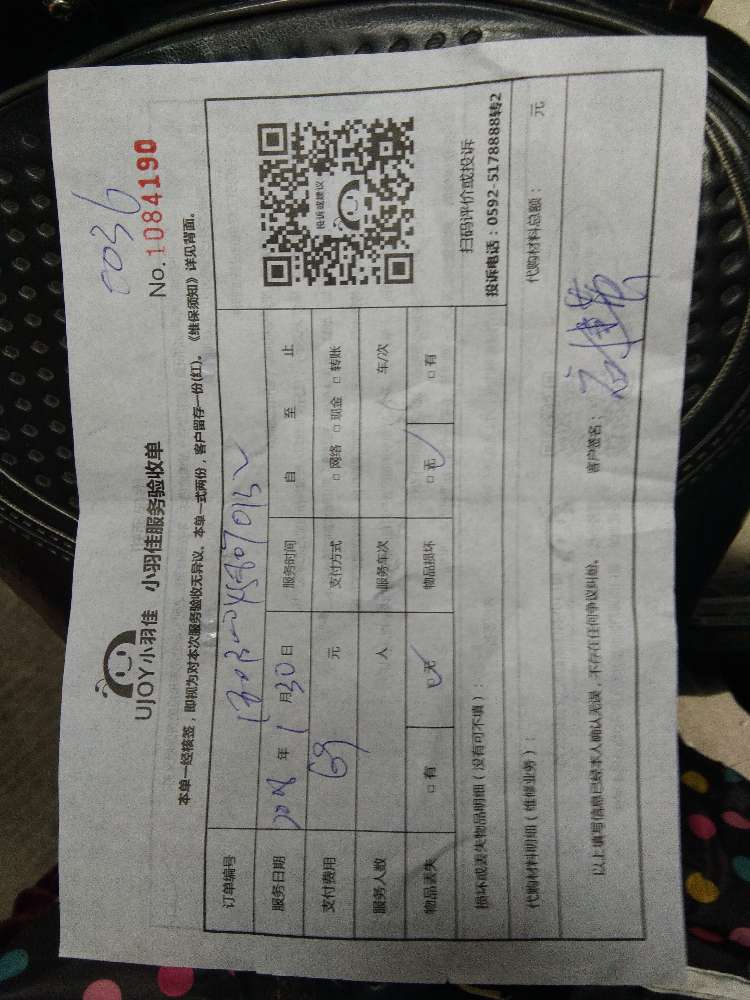 0036
No.1084190
UJOY小羽佳 小羽佳服务验收单
本单一经核签，即视为对本次服务验收无异议。本单一式两份，客户留存一份(红)。《维保须知》详见背面。
订单编号
服务日期 2018 年 1 月 30 日 服务时间 自 至 止
支付费用 69 元 支付方式 □ 网络 □ 现金 □ 转账
服务人数 人 服务车次 车/次
物品丢失 □ 有 □ 无 物品损坏 □ 无 □ 有
投诉或建议
扫码评价或投诉
投诉电话：0592-5178888转2
损坏或丢失物品明细（没有可不填）：
代购材料明细（维修业务）： 代购材料总额： 元
以上填写信息已经本人确认无误，不存在任何争议纠纷。 客户签名：